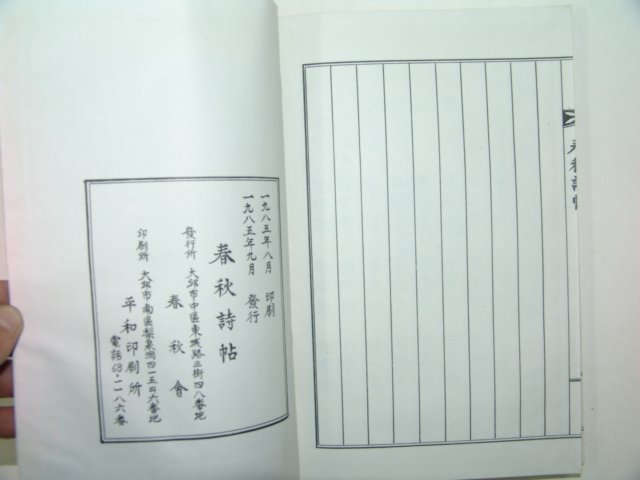 春秋詩帖
一九八五年八月 印刷
一九八五年九月 發行
春秋詩帖
發行所 大邱市中區東城路三街四八番地
春秋會
印刷所 大邱市南區梨泉洞四一五의六番地
平和印刷所
電話68·一一八六番